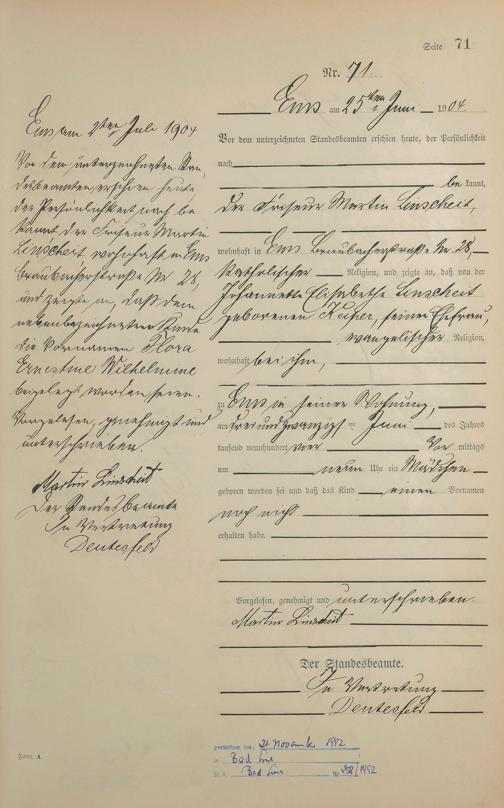 Seite 71
Nr. 71.
Ems am 25ten Juni 1904.
Vor dem unterzeichneten Standesbeamten erschien heute, der Persönlichkeit
nach
be kannt,
der Friseur Martin Linscheit,
wohnhaft in Ems Braubacherstraße Nr. 28,
katholischer Religion, und zeigte an, daß von der
Johannette Elisabethe Linscheit
geborenen Keifer, seiner Ehefrau,
evangelischer Religion,
wohnhaft bei ihm,
zu Ems in seiner Wohnung,
am dreiundzwanzigsten Juni des Jahres
tausend neunhundert vier Vor mittags
um neun Uhr ein Mädchen
geboren worden sei und daß das Kind einen Vornamen
noch nicht
erhalten habe.
Vorgelesen, genehmigt und unterschrieben.
Martin Linscheit
Der Standesbeamte.
In Vertretung
Deutesfeld
Ems am 2ten Juli 1904
Vor dem unterzeichneten Stan-
desbeamten erschien heute
der Persönlichkeit nach be
kannt der Friseur Martin
Linscheit, wohnhaft in Ems
Braubacherstraße Nr 28,
und zeigte an, daß dem
nebenbezeichneten Kinde
die Vornamen Flora
Ernestine Wilhelmine
beigelegt worden seien.
Vorgelesen, genehmigt und
unterschrieben.
Martin Linscheit
Der Standesbeamte
In Vertretung
Deutesfeld
Form. A.
gestorben am: 21. November 1992
in Bad Ems
St. A. Bad Ems Nr. 238/1992